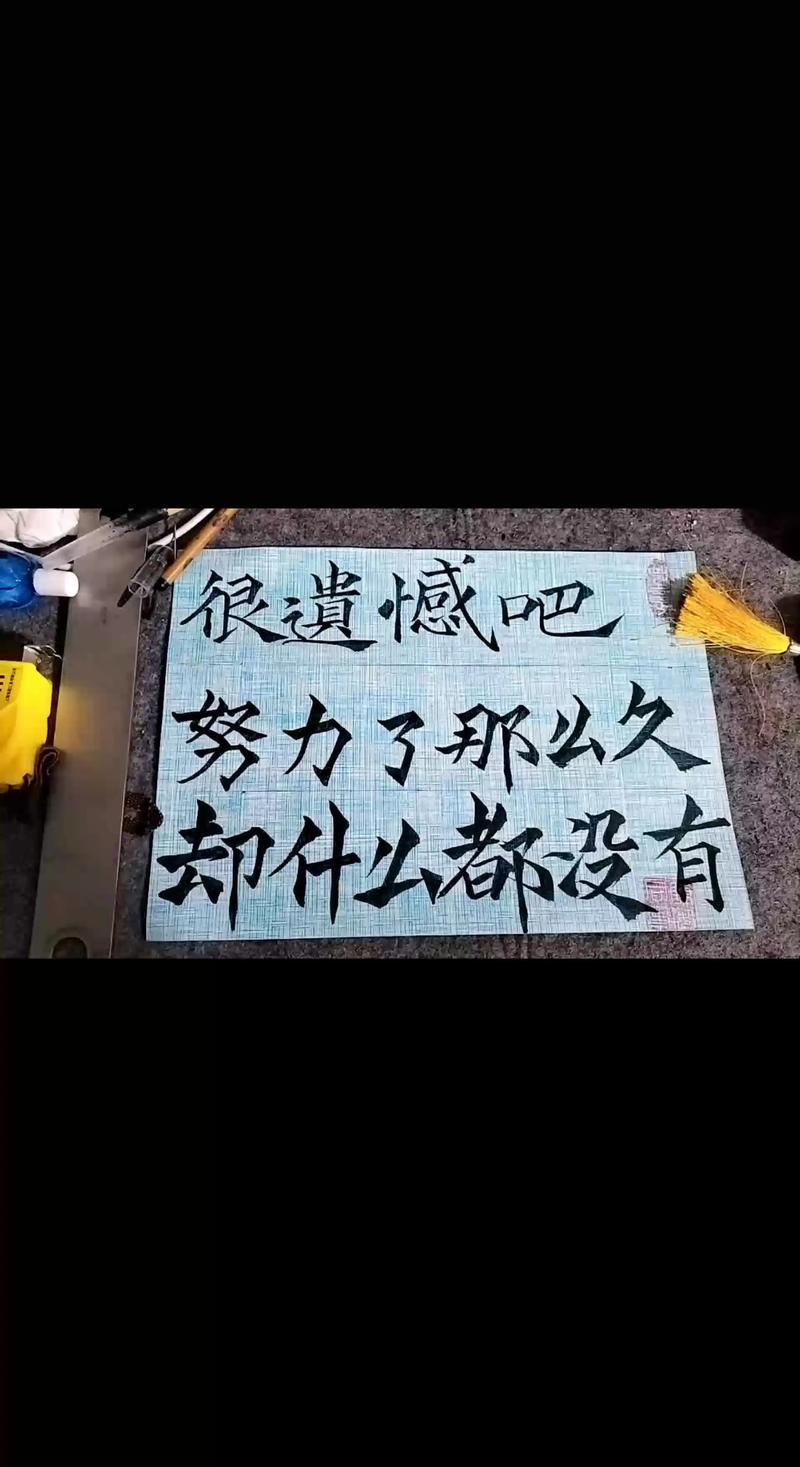 很遺憾吧
努力了那么久
却什么都没有